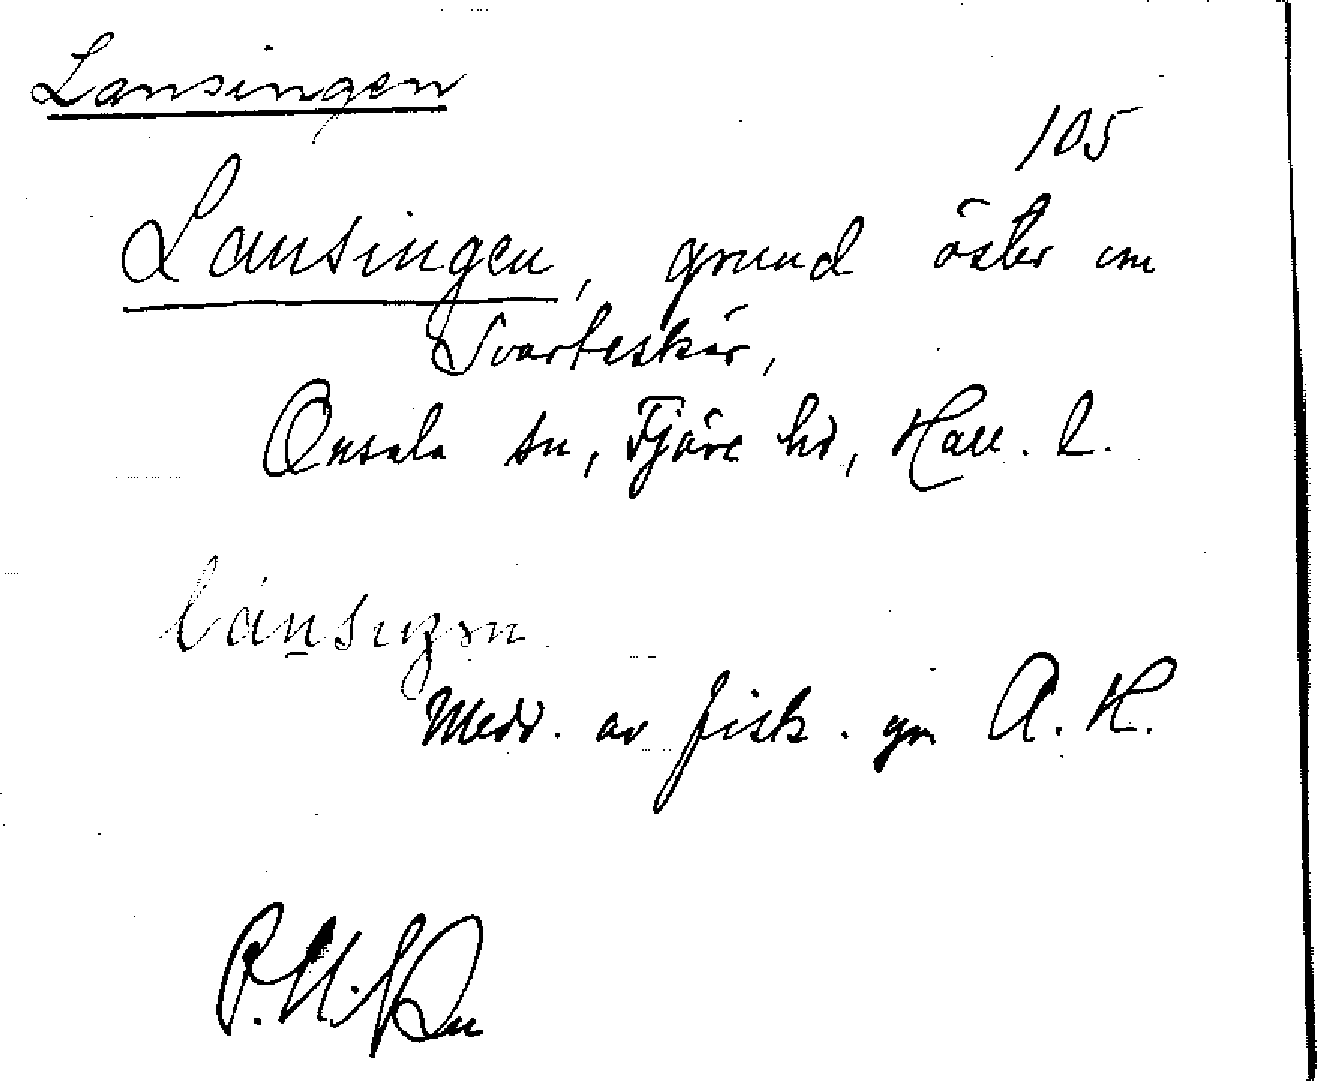 Lansingen
105
Lansingen, grund öster om
Svarteskär,
Onsala sn, Fjäre hd, Hall. l.
Medd. av fisk. gm A. H.